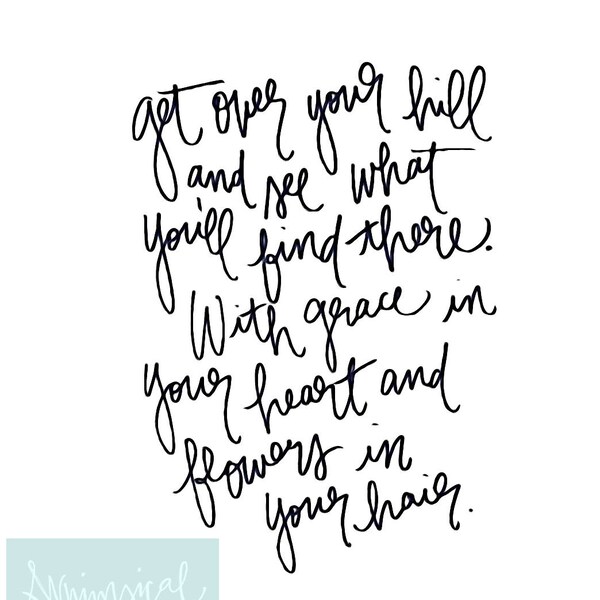 get over your hill
and see what
you'll find there.
With grace in
your heart and
flowers in
your hair.
Whimsical